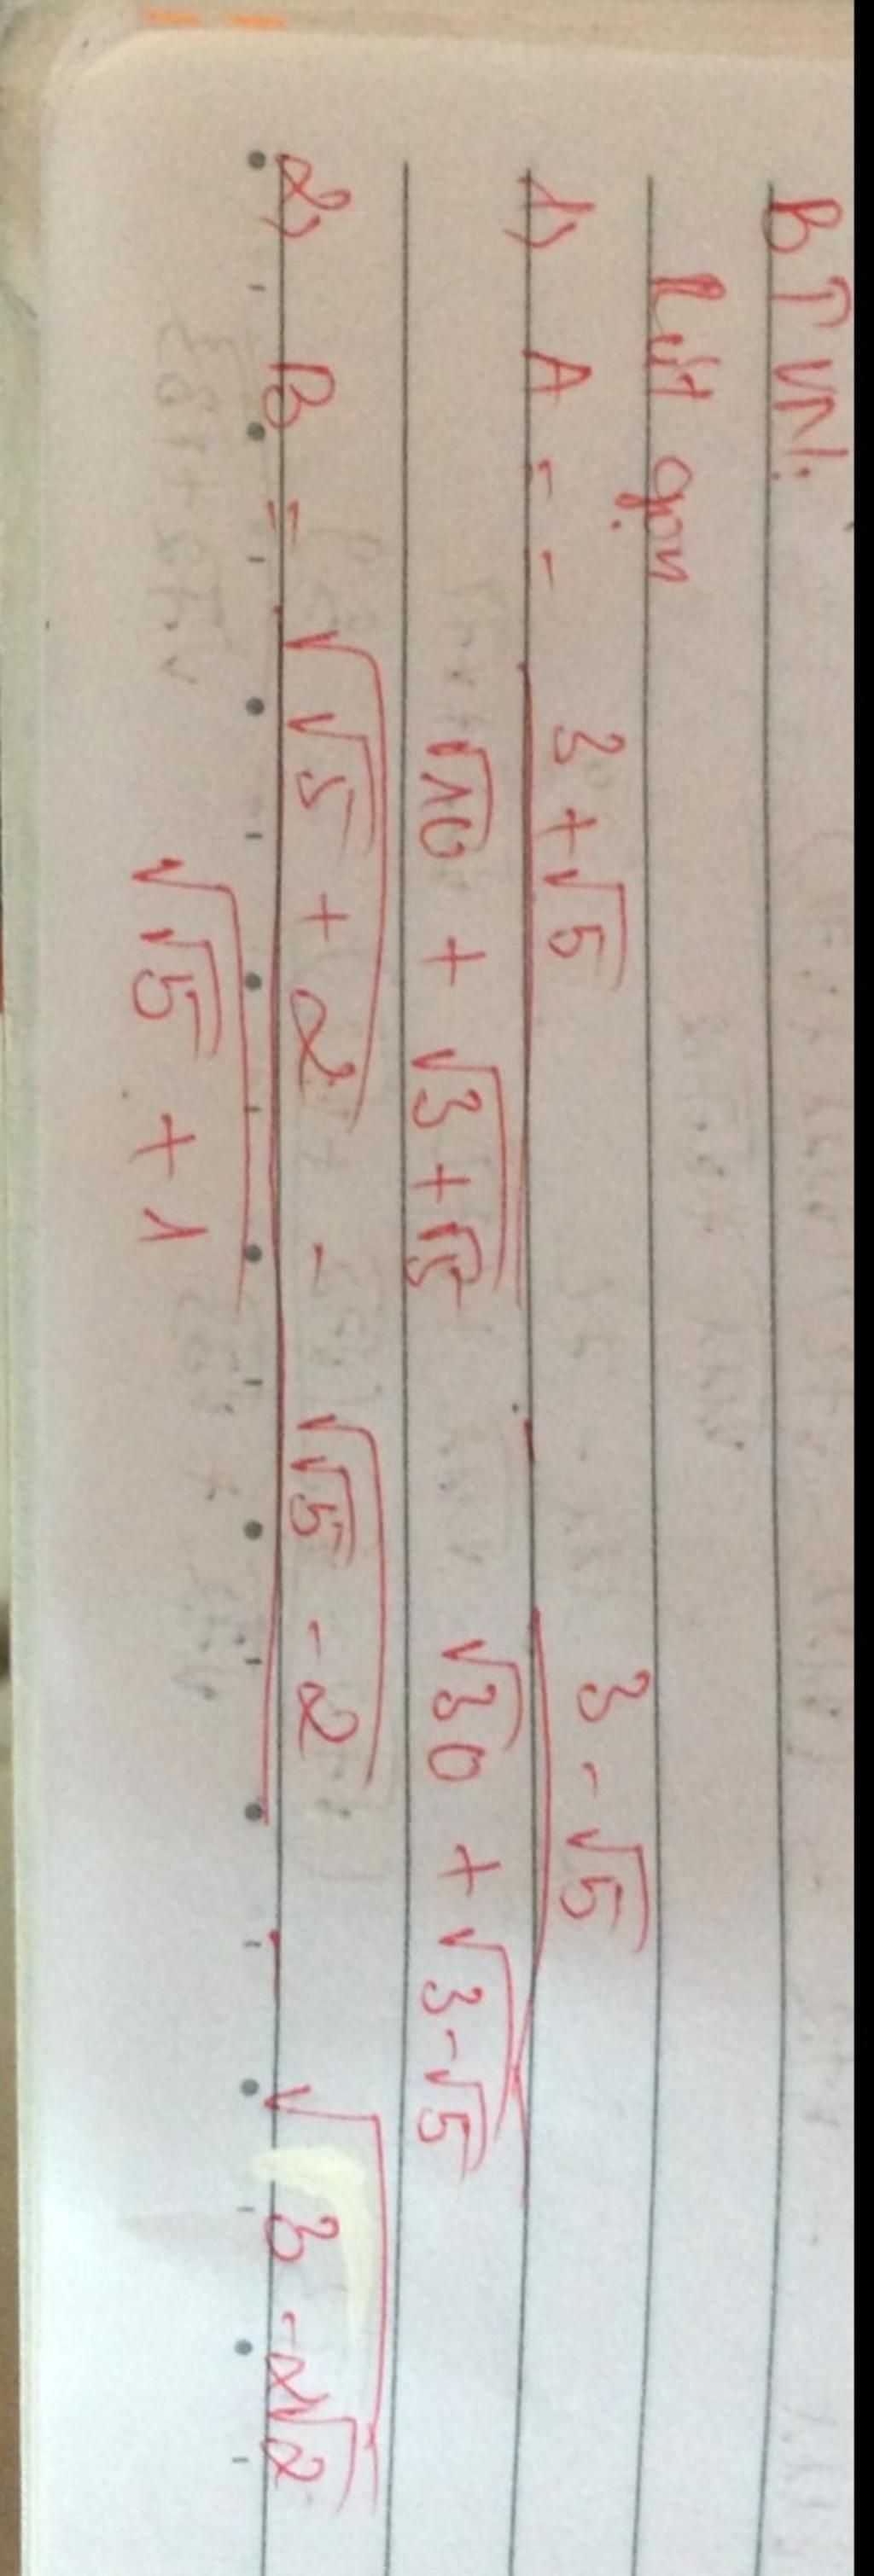 BTVN:
Rút gọn
1) A = - (3 + √5)/(√10 + √(3 + √5)) - (3 - √5)/(√30 + √(3 - √5))
2) B = (√(√5 + 2) - √(√5 - 2))/√(√5 + 1) - √(3 - 2√2)